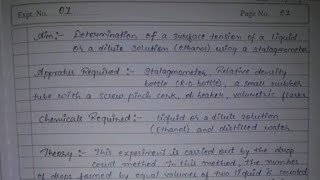 Expt. No. 01 Page No. 02
Aim :- Determination of a surface tension of a liquid
or a dilute solution (ethanol) using a stalagmometer.
Appratus Required :- Stalagmometer, Relative density
bottle (R.D. bottle), a small rubber
tube with a screw pinch cork, a beaker, volumetric flasks
Chemicals Required :- Liquid or a dilute solution
(Ethanol) and distilled water
Theory :- This experiment is carried out by the drop
count method. In this method, the number
of drops formed by equal volume of two liquid is counted